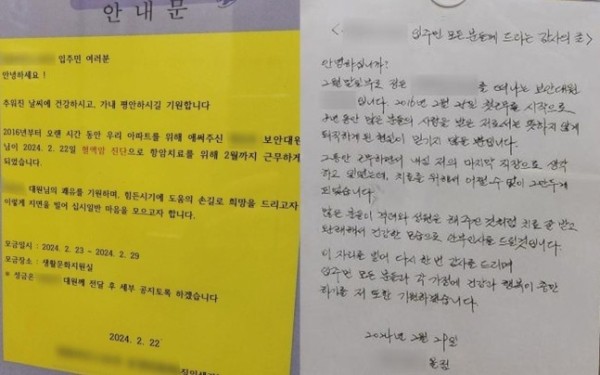 안 내 문
입주민 여러분
안녕하세요 !
추워진 날씨에 건강하시고, 가내 평안하시길 기원합니다
2016년부터 오랜 시간 동안 우리 아파트를 위해 애써주신 보안대원
님이 2024. 2. 22일 혈액암 진단으로 항암치료를 위해 2월까지 근무하게
되었습니다.
대원님의 쾌유를 기원하며, 힘든시기에 도움의 손길로 희망을 드리고자
이렇게 지면을 빌어 십시일반 마음을 모으고자 합니다.
모금일시 : 2024. 2. 23 ~ 2024. 2. 29
모금장소 : 생활문화지원실
※ 성금은 대원께 전달 후 세부 공지토록 하겠습니다
2024. 2. 22
< 입주민 모든 분들께 드리는 감사의 글 >
안녕하십니까?
2월 말일부로 정든 를 떠나는 보안대원
입니다. 2016년 2월 첫근무를 시작으로
많은 분들의 사랑을 받은 저로서는 뜻하지 않게
퇴직하게 된 현실이 믿기지 않을 뿐입니다.
그동안 근무하면서 내심 저의 마지막 직장으로 생각
하고 있었는데, 치료를 위해서 어쩔 수 없이 그만두게
되었습니다.
많은 분들이 격려와 성원을 해 주신 것처럼 치료 잘 받고
완쾌해서 건강한 모습으로 안부인사를 드릴것입니다.
이 자리를 빌어 다시 한 번 감사를 드리며
입주민 모든 분들과 각 가정에 건강과 행복이 충만
하기를 저 또한 기원하겠습니다.
2024년 2월 29일
올림